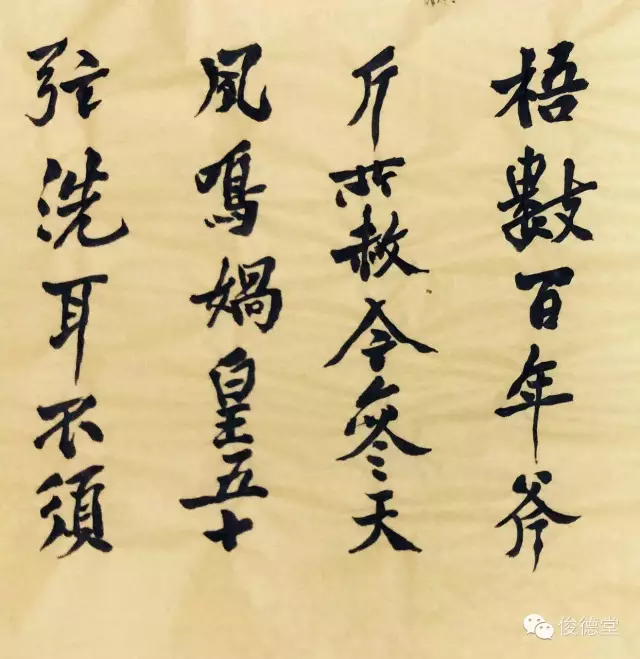 梧數百年斧
斤所赦今參天
風鳴媧皇五十
弦洗耳不須
俊德堂